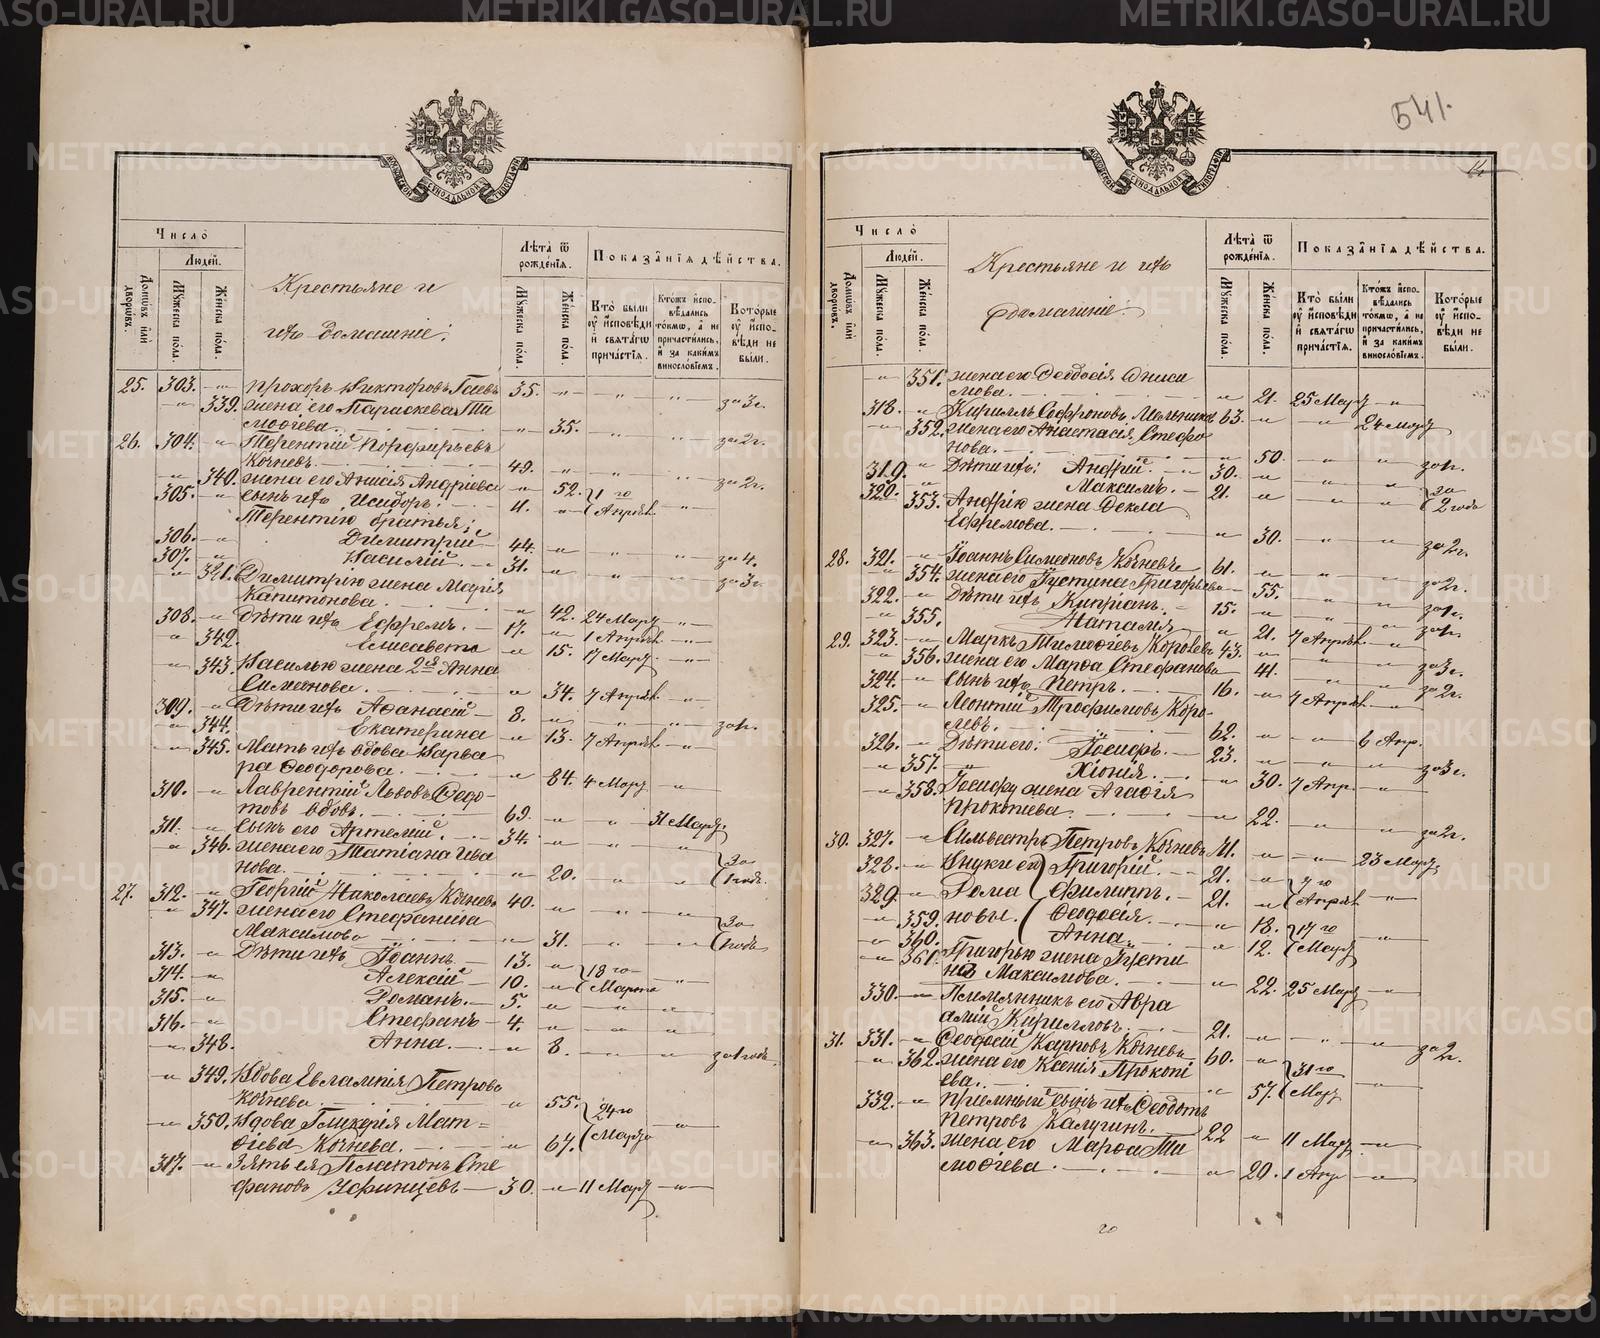 541.
Число
Людей.
Домѡвъ или дворѡвъ.
Мꙋжеска пола.
Женска пола.
Крестьяне и
ихъ домашніе:
Лѣта ѿ рожденїѧ.
Мꙋжеска пола.
Женска пола.
Показанїѧ дѣйства.
Кто были ꙋ исповѣди и свѧтагѡ причастїѧ.
Ктожъ исповѣдались токмѡ, а не причастились, и за какимъ винословїемъ.
Которые ꙋ исповѣди не были.
25. 303. Прохоръ Викторовъ Гаевъ 35.
339. жена его Параскева Ти за 3 г.
мофеева. 35.
26. 304. Терентій Порфирьевъ за 2 г.
Кочневъ. 49.
340. жена его Анисія Андріева 52. за 2 г.
305. сынъ ихъ Исидоръ. 11. 1 го Апрѣля
Терентію братья:
306. Димитрій 44.
307. Василій. 31. за 4.
341. Димитрію жена Марія за 3 г.
Капитонова. 42. 24 Март
308. Дѣти ихъ Ефремъ. 17. 1 Апрѣля
342. Елисавета 15. 17 Март
343. Василью жена 2я Анна
Симеонова. 34. 7 Апрѣля
309. Дѣти ихъ Аѳанасій 8. за 1 г.
344. Екатерина 13. 7 Апрѣля
345. Мать ихъ вдова Варва
ра Ѳеодорова. 84. 4 Март
310. Лаврентій Львовъ Ѳедо-
товъ вдовъ. 69. 31 Март
311. Сынъ его Артемій. 34.
346. жена его Татіана Ива
нова. 20. за 1 годъ.
27. 312. Георгій Николаевъ Кочневъ 40.
347. жена его Стефанида
Максимова 31. за 1 годъ
313. Дѣти ихъ Іоаннъ 13.
314. Алексій 10. 18 го Марта
315. Романъ. 5.
316. Стефанъ 4.
348. Анна. 8. за 1 годъ.
349. Вдова Евлампія Петрова
Кочнева. 55. 24 го Марта
350. Вдова Гликерія Мат=
ѳіева Кочнева. 67.
317. Зять ея Платонъ Сте
фановъ Уфинцевъ 30. 11 Март
Число
Людей.
Домѡвъ или дворѡвъ.
Мꙋжеска пола.
Женска пола.
Крестьяне и ихъ
домашніе:
Лѣта ѿ рожденїѧ.
Мꙋжеска пола.
Женска пола.
Показанїѧ дѣйства.
Кто были ꙋ исповѣди и свѧтагѡ причастїѧ.
Ктожъ исповѣдались токмѡ, а не причастились, и за какимъ винословїемъ.
Которые ꙋ исповѣди не были.
351. жена его Ѳеодосія Аниси
мова. 21. 25 Март
318. Кириллъ Софроновъ Мельников 63. 24 Март
352. жена его Анастасія Стефа
нова. 50. за 1 г.
319. Дѣти ихъ: Андрій. 30.
320. Максимъ. 21. за 2 года
353. Андрію жена Ѳекла
Ефремова. 30. за 2 г.
28. 321. Іоаннъ Симеоновъ Кочневъ 61.
354. жена его Іустина Григорьева 55. за 2 г.
322. Дѣти ихъ Кипріанъ. 15. за 1 г.
355. Наталія 21. 7 Апрѣля за 1 г.
29. 323. Маркъ Тимоѳеевъ Королевъ 43.
356. жена его Марѳа Стефанова 41. за 3 г.
324. сынъ ихъ Петръ. 16. 7 Апрѣля за 2 г.
325. Леонтій Трофимовъ Коро-
левъ. 62. 6 Апр.
326. Дѣти его: Іосифъ. 23.
357. Хіонія. 30. 7 Апр. за 3 г.
358. Іосифу жена Агаѳія
Прокопіева. 22. за 2 г.
30. 327. Сильвестръ Петровъ Кочневъ 71. 23 Март
328. Внуки его Григорій. 21. 7 го Апрѣля
329. Рома Филиппъ. 21.
359. новы. Ѳеодосія. 18. 17 го Март
360. Анна. 12.
361. Григорью жена Іусти
на Максимова. 22. 25 Март
330. Племянникъ его Авра
амій Кирилловъ. 21. за 2 г.
31. 331. Ѳеодосій Карповъ Кочневъ 60.
362. жена его Ксенія Прокопі
ева. 57. 31 го Март
332. пріемный сынъ ихъ Ѳеодотъ
Петровъ Калугинъ. 22 11 Март
363. жена его Марѳа Ти
моѳіева. 20. 1 Апр
METRIKI.GASO-URAL.RU